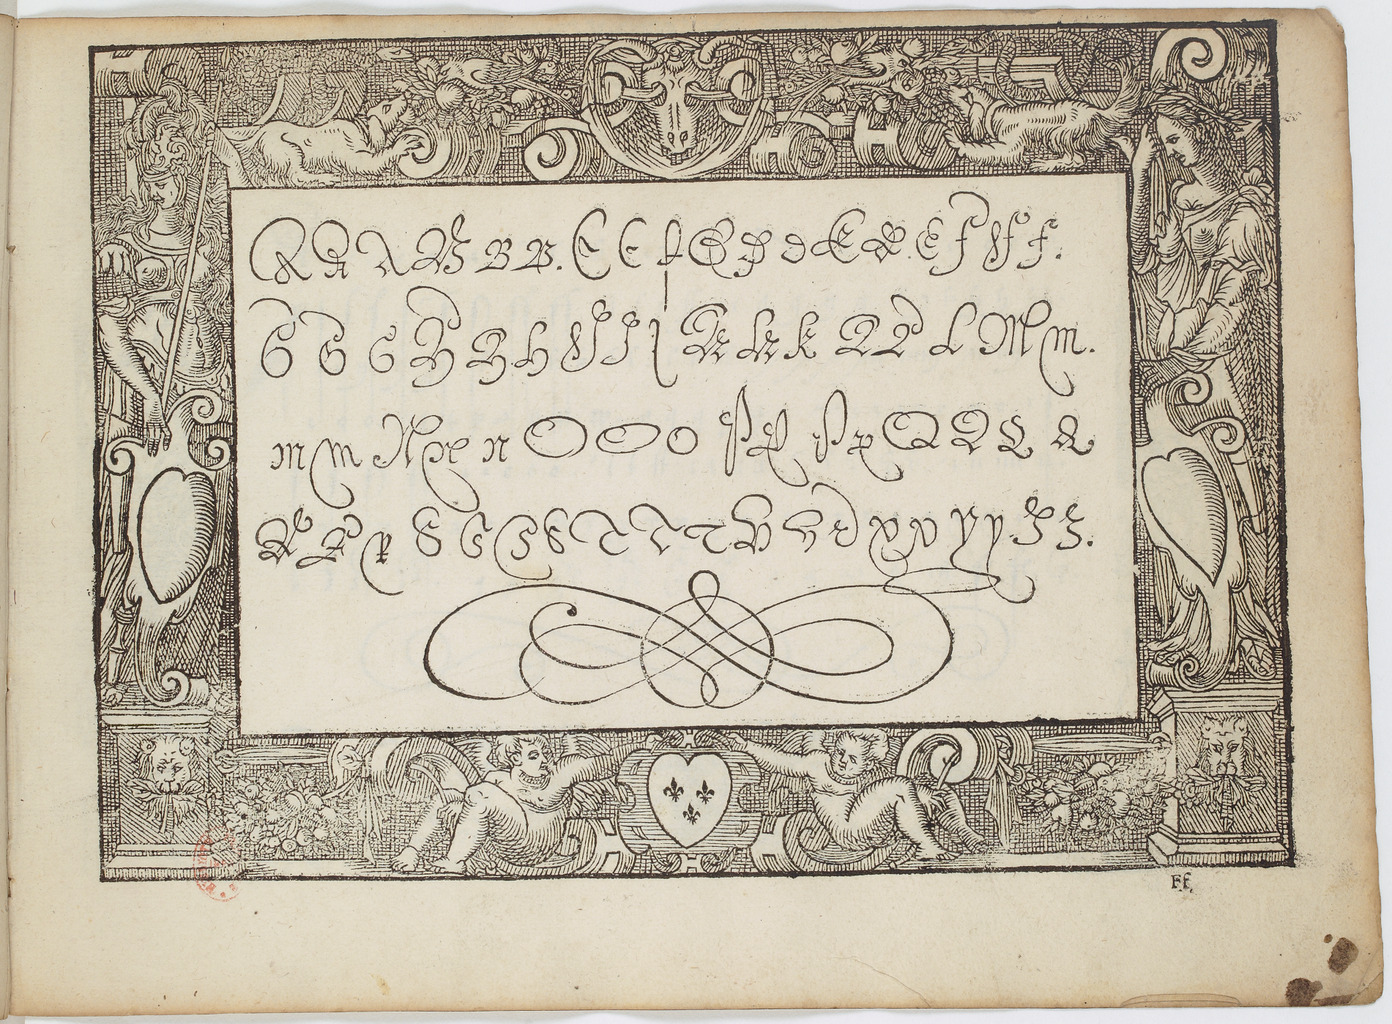 A A A B B B. C C C D D D E E E F F F.
G G G H H H I I I K K K L L L M m.
m m N n n O O O P P P P Q Q Q Q
R R R S S S S T T T V V V X X Y Y Z Z.
F f.